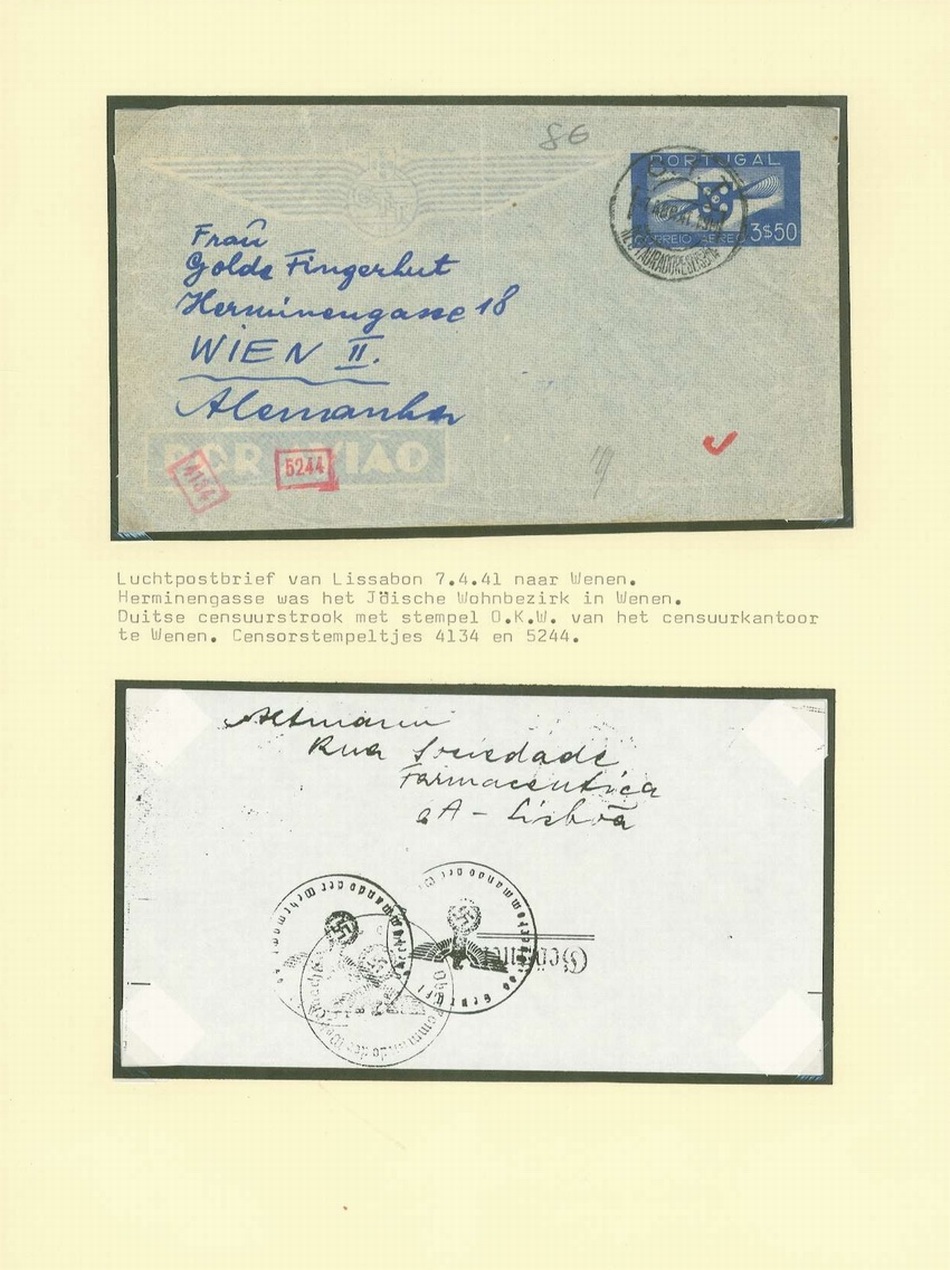 86
PORTUGAL
CORREIO AEREO 3$50
C.T.T.
RESTAURADORES LISBOA
CTT
Frau
Golde Fingerhut
Herminengasse 18
WIEN II.
Alemanha
POR AVIÃO
4134
5244
Luchtpostbrief van Lissabon 7.4.41 naar Wenen.
Herminengasse was het Jöische Wohnbezirk in Wenen.
Duitse censuurstrook met stempel O.K.W. van het censuurkantoor
te Wenen. Censorstempeltjes 4134 en 5244.
Altmann
Rua Sociedade
Farmaceutica
2A - Lisbôa
Oberkommando der Wehrmacht
Oberkommando der
Oberkommando der Wehrmacht
Geöffnet